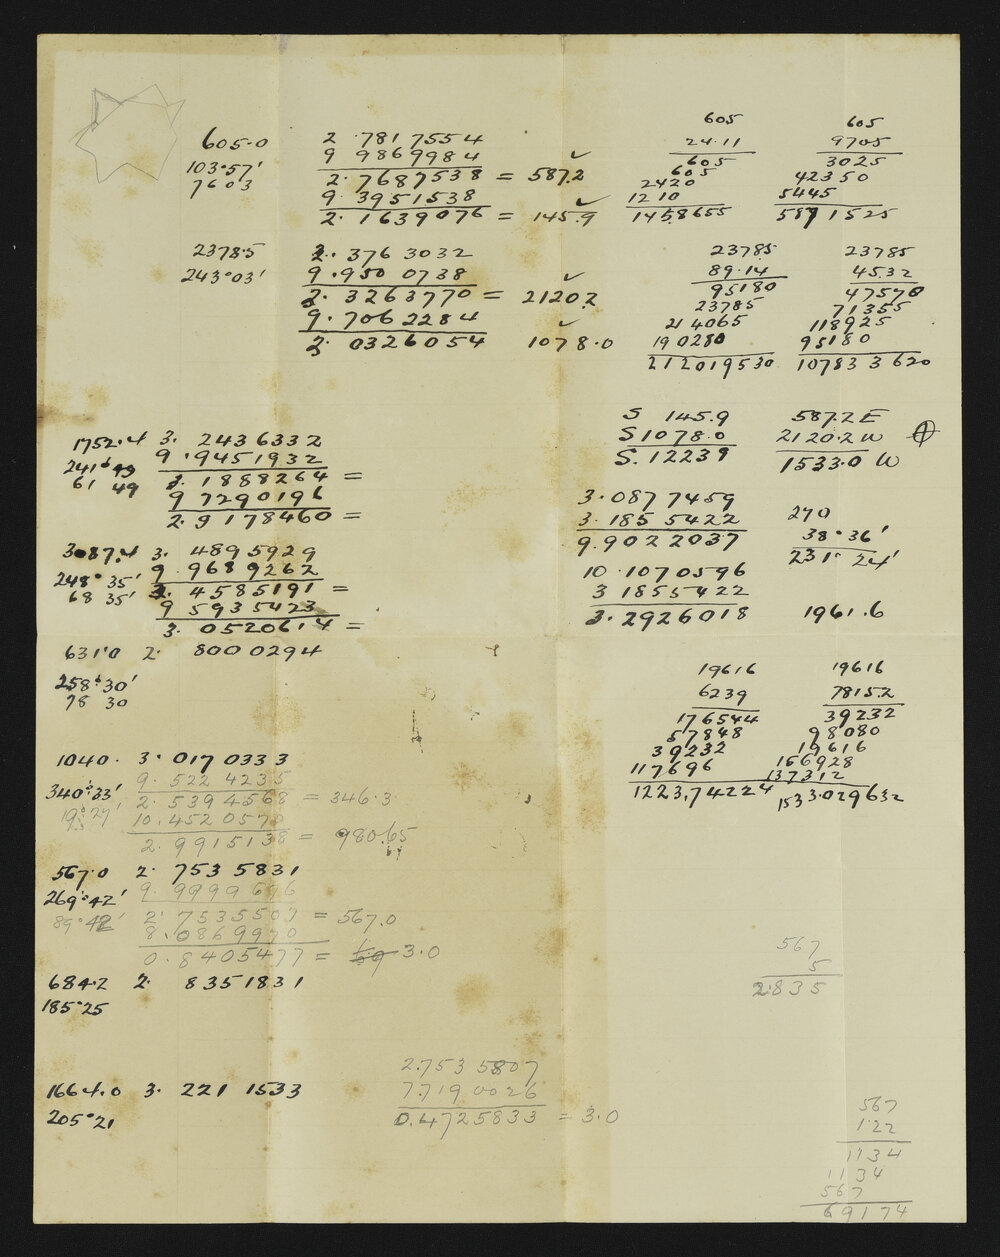 605.0 2 .7817555 4
103°57' 9 9869984
7603 2.7687538 = 587.2
9.3951538
2.1639076 = 145.9
605
24.11
605
605
2420
1210
1458655
605
9705
3025
42350
5445
5871525
2378.5 3.. 376 3032
243°03' 9.950 0738
3.3263770 = 2120.2
9.7062284
3. 0326054 1078.0
23785
89.14
95180
23785
214065
190280
212019530
23785
4532
47570
71355
118925
95180
107833620
S 145.9 587.2 E
S 1078.0 2120.2 W
S. 12239 1533.0 W
3.0877459
3.1855422
9.9022037
270
38°36'
231° 24'
10.1070596
3 1855422
3.2926018 1961.6
1752.4 3. 2436332
241°49 9.9451932
61 49 3.1888264 =
9 7290196
2.9178460 =
3087.4 3. 4895929
248°35' 9.9689262
68 35' 3.4585191 =
9 5935423
3. 0520614 =
631.0 2. 8000294
258°30'
78 30
19616
6239
176544
57848
39232
117696
1223,74224
19616
78152
39232
98080
19616
156928
137312
1533.029632
1040. 3.017 0333
340°33' 9. 522 4235
19°27' 2.5394568 = 346.3
10.4520570
2.9915138 = 980.65
567.0 2. 753 5831
269°42' 9.9999696
89°42' 2.7535507 = 567.0
8.0869970
0.8405477 = 3.0
684.2 2. 8351831
185°25
567
5
2.835
1664.0 3. 221 1533
205°21
2.753 5807
7.7190026
0.4725833 = 3.0
567
1.22
1134
1134
567
69174